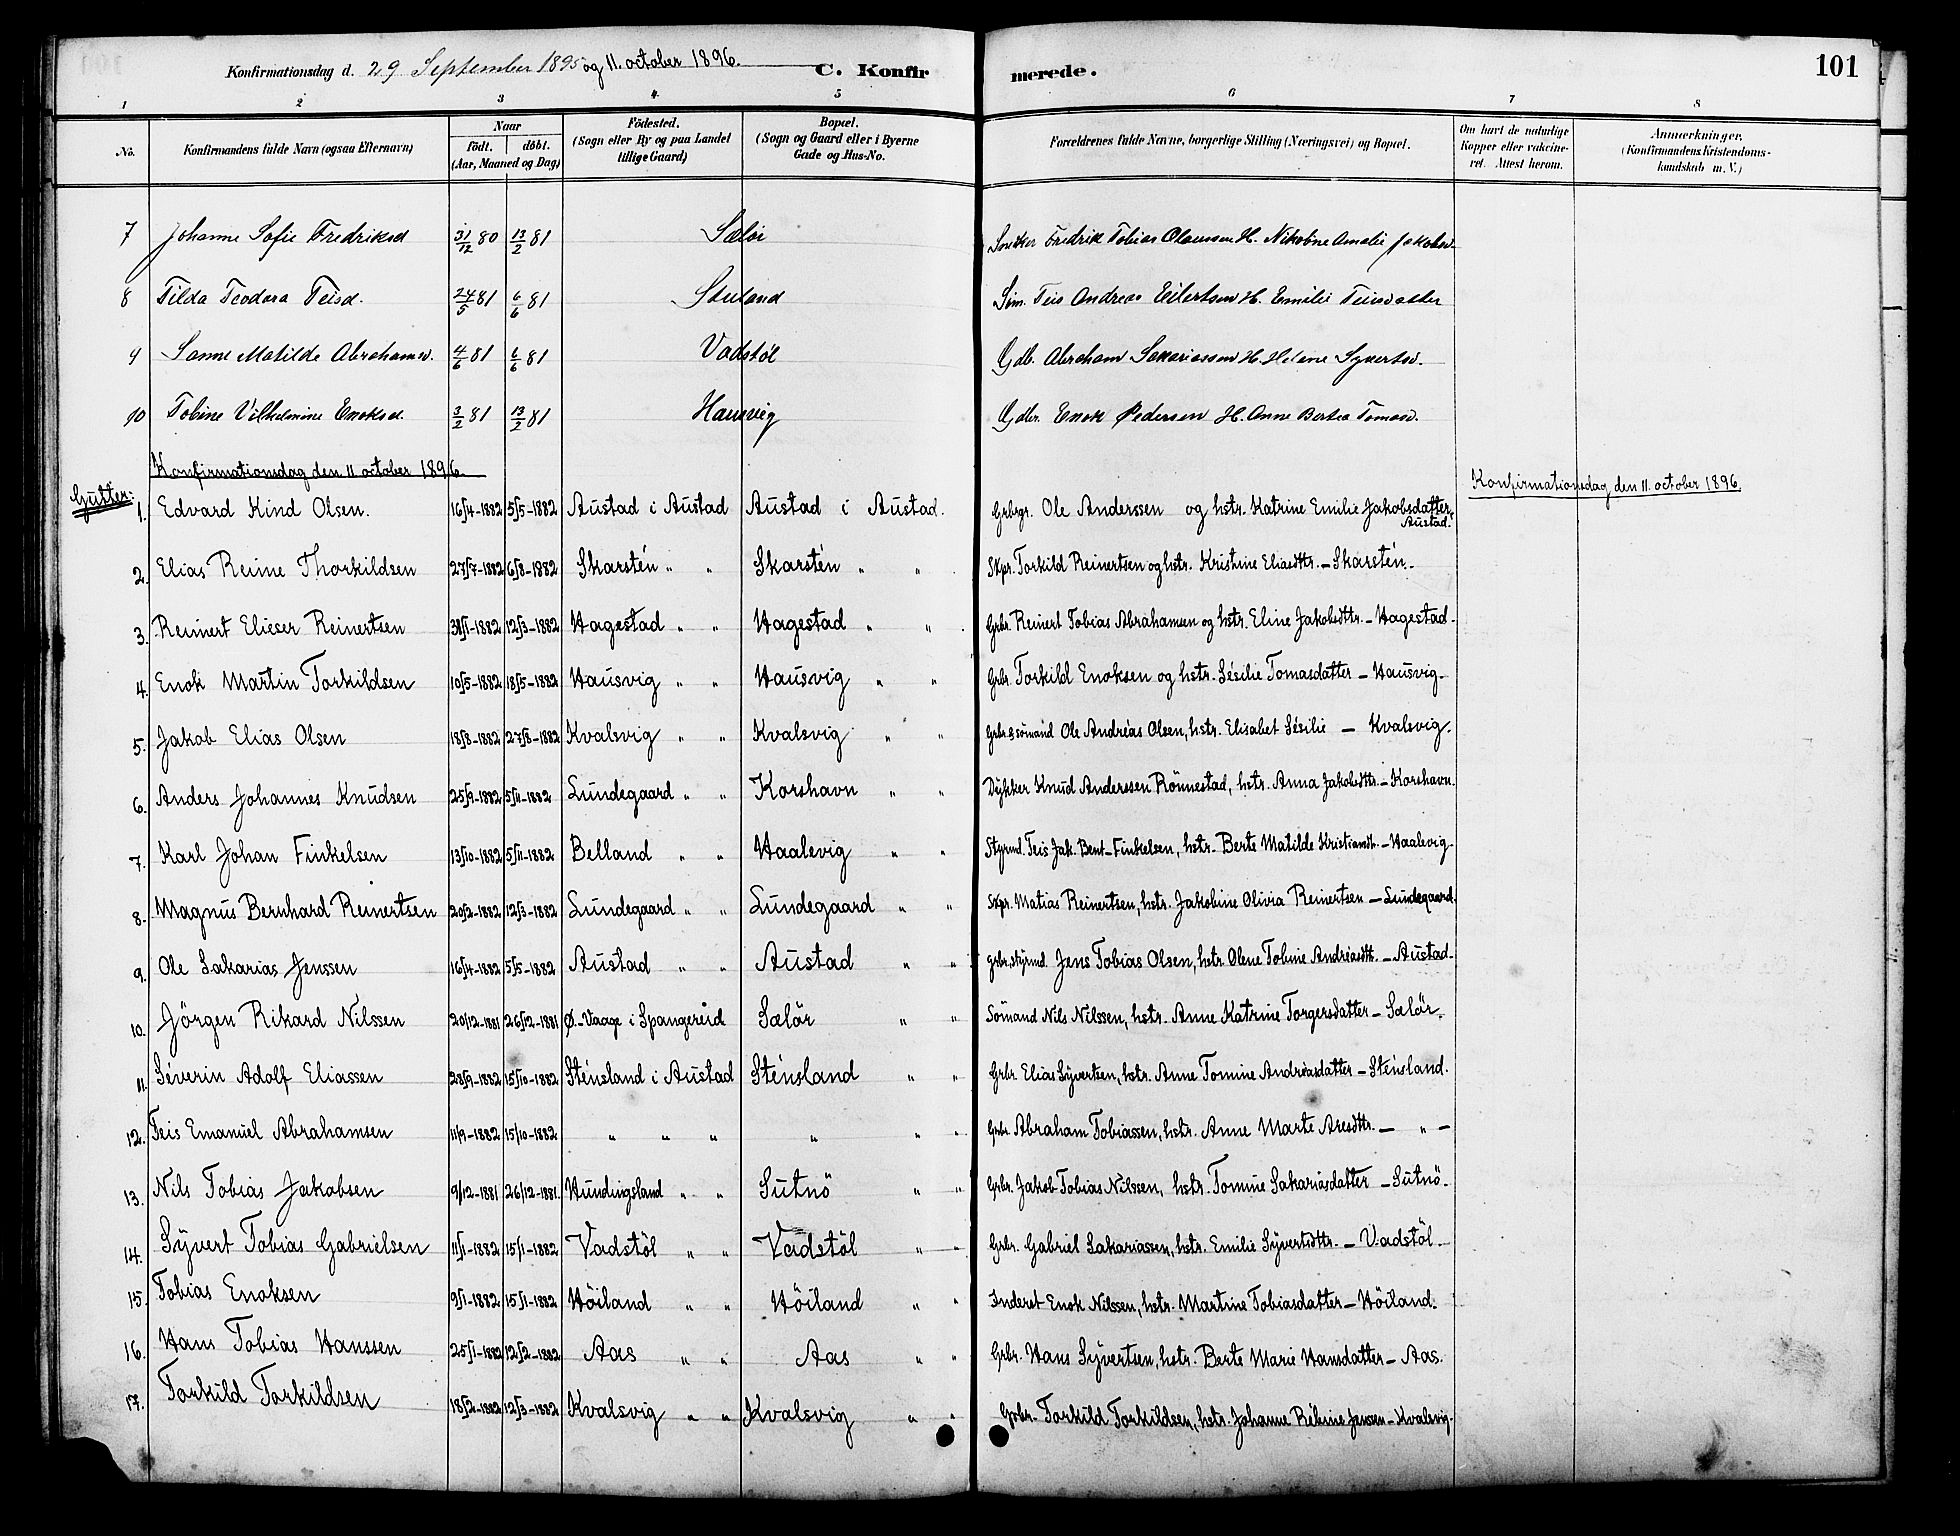 Konfirmationsdag d. 29 September 1895 og 11. october 1896. C. Konfirmerede. 101
1 2 3 4 5 6 7 8
No. Konfirmandens fulde Navn (ogsaa Efternavn) Naar födt. döbt. (Aar, Maaned og Dag) Födested. (Sogn eller By og paa Landet tillige Gaard) Bopæl. (Sogn og Gaard eller i Byerne Gade og Hus-No. Forældrenes fulde Navne, borgerlige Stilling (Næringsvei) og Bopæl. Om havt de naturlige Kopper eller vakcineret. Attest herom. Anmærkninger. (Konfirmandens Kristendomskundskab m. V.)
7 Johanne Sofie Fredriksd 31/12 80 13/2 81 Sælör Snekker Fredrik Tobias Olaussen H. Nikoline Amalie Jakobsd
8 Tilda Teodora Teisd. 24/5 81 6/6 81 Stuland Söm. Teis Andreas Eilertsen H. Emilie Teisdatter
9 Sanne Matilde Abrahamsd. 4/6 81 6/6 81 Vadstöl Gdb. Abraham Sakariassen H. Helene Syvertsd.
10 Tobine Vilhelmine Enoksd. 3/2 81 13/2 81 Hausvig Gdbr. Enok Pedersen H. Anne Bertea Tomasd.
Konfirmationsdag den 11 october 1896. Konfirmationsdag den 11. october 1896.
Gutter:
1. Edvard Kind Olsen. 16/4-1882 5/5-1882 Austad i Austad Austad i Austad. Grbrgr. Ole Anderssen og hstr. Katrine Emilie Jakobsdatter, Austad.
2. Elias Reime Thorkildsen 27/7-1882 6/8-1882 Skarstén " " Skarstén " " Skpr. Torkild Reinertsen og hstr. Kristine Eliasdttr. - Skarstén.
3. Reinert Elieser Reinertsen 31/1-1882 12/3-1882 Hagestad " " Hagestad " " Grbr. Reinert Tobias Abrahamsen og hstr. Eline Jakobsdttr. - Hagestad.
4. Enok Martin Torkildsen 10/5-1882 18/5-1882 Hausvig " " Hausvig " " Grbr. Torkild Enoksen og hstr. Sésilie Tomasdatter - Hausvig.
5. Jakob Elias Olsen 18/8-1882 27/8-1882 Kvalsvig " " Kvalsvig " " Grbr. & sömand Ole Andréas Olsen, hstr. Elisabet Sésilie - Kvalsvig.
6. Anders Johannes Knudsen 25/9-1882 5/11-1882 Lundegaard " " Korshavn " " Dykker Knud Anderssen Rönnestad, hstr. Anna Jakobsdttr. - Korshavn.
7. Karl Johan Finkelsen 13/10-1882 5/11-1882 Belland " " Haalevig " " Styrmd. Teis Jak. Bent-Finkelsen, hstr. Berte Matilde Kristiansdtr. - Haalevig
8. Magnus Bernhard Reinertsen 20/2-1882 12/3-1882 Lundegaard " " Lundegaard " " Skpr. Matias Reinertsen, hstr. Jakobine Olivia Reinertsen - Lundegaard.
9. Ole Sakarias Jenssen 16/4-1882 5/5-1882 Austad " " Austad " " grbr. styrmd. Jens Tobias Olsen, hstr. Olene Tobine Andréasdtr. - Austad.
10. Jörgen Rikard Nilssen 20/12-1881 26/12-1881 Ø.-Vaage i Spangereid Sælör " " Sömand Nils Nilssen, hstr. Anne Katrine Torgersdatter - Sælör.
11. Séverin Adolf Eliassen 28/9-1882 15/10-1882 Sténsland i Austad Sténsland " " Grbr. Elias Syvertsen, hstr. Anne Tomine Andréasdatter - Sténsland.
12. Teis Emanuel Abrahamsen 11/9-1882 15/10-1882 " " " " " " Grbr. Abraham Tobiassen, hstr. Anne Marte Aresdttr. - " -
13. Nils Tobias Jakobsen 9/12-1881 26/12-1881. Hundingsland " " Sutnö " " Grbr. Jakob Tobias Nilssen, hstr. Tomine Sakariasdatter - Sutnö.
14. Syvert Tobias Gabrielsen 11/1-1882 15/1-1882 Vadstöl " " Vadstöl " " Grbr. Gabriel Sakariassen, hstr. Emilie Syvertsdttr. - Vadstöl.
15. Tobias Enoksen 9/1-1882 15/1-1882 Höiland " " Höiland " " Inderst Enok Nilssen, hstr. Martine Tobiasdatter - Höiland.
16. Hans Tobias Hanssen 25/1-1882 12/2-1882 Aas " " Aas " " Grbr. Hans Syvertsen, hstr. Berte Marie Hansdatter - Aas.
17. Torkild Torkildsen 18/2-1882 12/3-1882 Kvalsvig " " Kvalsvig " " Grbr. Torkild Torkildsen, hstr. Johanne Rébine Jenssen - Kvalsvig.